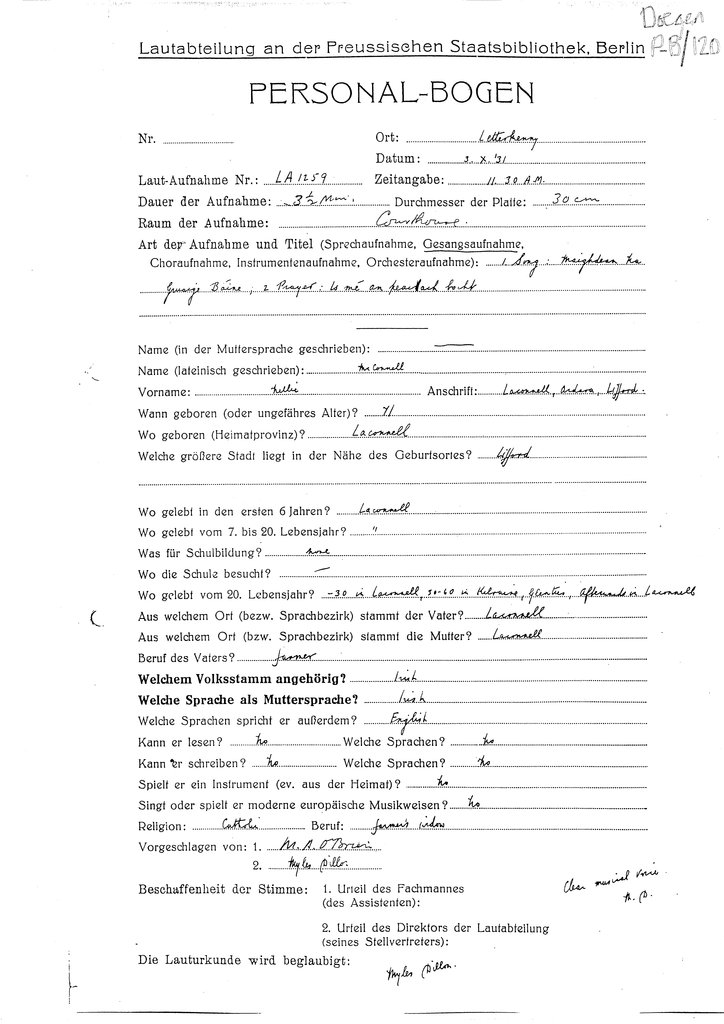 Doegen
Lautabteilung an der Preussischen Staatsbibliothek, Berlin P-B/120
PERSONAL-BOGEN
Nr. Ort: Letterkenny
Datum: 3. X. '31
Laut-Aufnahme Nr.: LA 1259 Zeitangabe: 11.30 A.M.
Dauer der Aufnahme: 3½ Min. Durchmesser der Platte: 30 cm
Raum der Aufnahme: Courthouse.
Art der Aufnahme und Titel (Sprechaufnahme, Gesangsaufnahme,
Choraufnahme, Instrumentenaufnahme, Orchesteraufnahme): 1. Song: Maighdean na
Gruaige Báine; 2 Prayer: Is mé an peacach bocht
Name (in der Muttersprache geschrieben): —
Name (lateinisch geschrieben): McConnell
Vorname: Nellie Anschrift: Laconnell, Ardara, Lifford.
Wann geboren (oder ungefähres Alter)? 71
Wo geboren (Heimatprovinz)? Laconnell
Welche größere Stadt liegt in der Nähe des Geburtsortes? Lifford
Wo gelebt in den ersten 6 Jahren? Laconnell
Wo gelebt vom 7. bis 20. Lebensjahr? "
Was für Schulbildung? none
Wo die Schule besucht? —
Wo gelebt vom 20. Lebensjahr? -30 in Laconnell, 30-60 in Kilraine, Glenties, afterwards in Laconnell
Aus welchem Ort (bezw. Sprachbezirk) stammt der Vater? Laconnell
Aus welchem Ort (bzw. Sprachbezirk) stammt die Mutter? Laconnell
Beruf des Vaters? farmer
Welchem Volksstamm angehörig? Irish
Welche Sprache als Muttersprache? Irish
Welche Sprachen spricht er außerdem? English
Kann er lesen? No Welche Sprachen? No
Kann er schreiben? No Welche Sprachen? No
Spielt er ein Instrument (ev. aus der Heimat)? No
Singt oder spielt er moderne europäische Musikweisen? No
Religion: Catholic Beruf: farmer's widow
Vorgeschlagen von: 1. M. A. O'Brien
2. Myles Dillon
Beschaffenheit der Stimme: 1. Urteil des Fachmannes Clear musical voice.
(des Assistenten): M. D.
2. Urteil des Direktors der Lautabteilung
(seines Stellvertreters):
Die Lauturkunde wird beglaubigt: Myles Dillon.